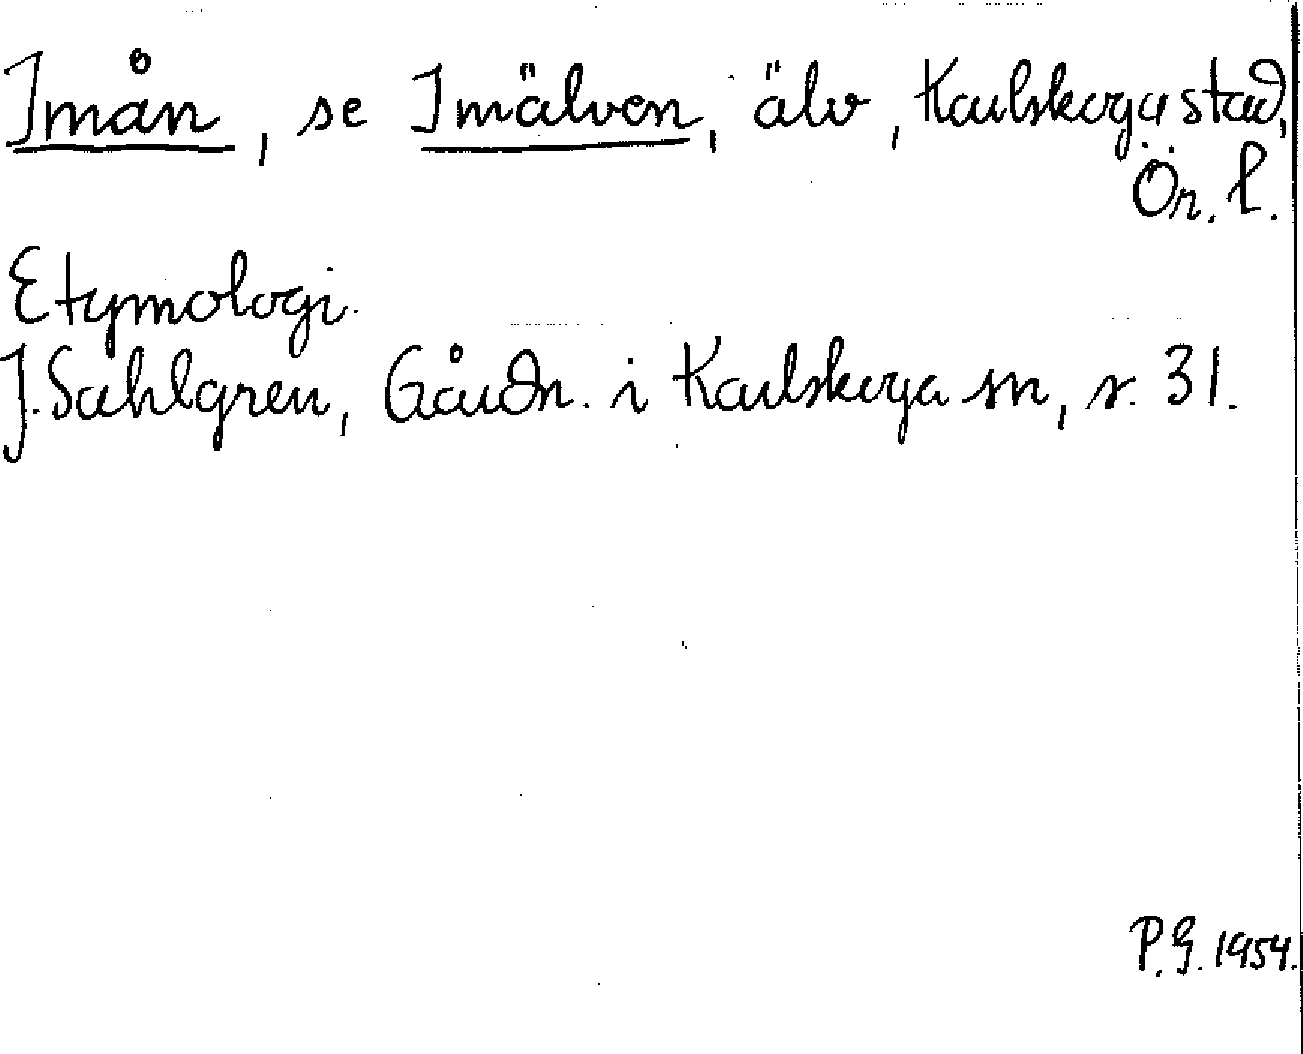 Imån, se Imälven, älv, Karlskoga stad,
Ör. l.
Etymologi.
J. Sahlgren, Gårdn. i Karlskoga sn, s. 31.
P.G. 1954.